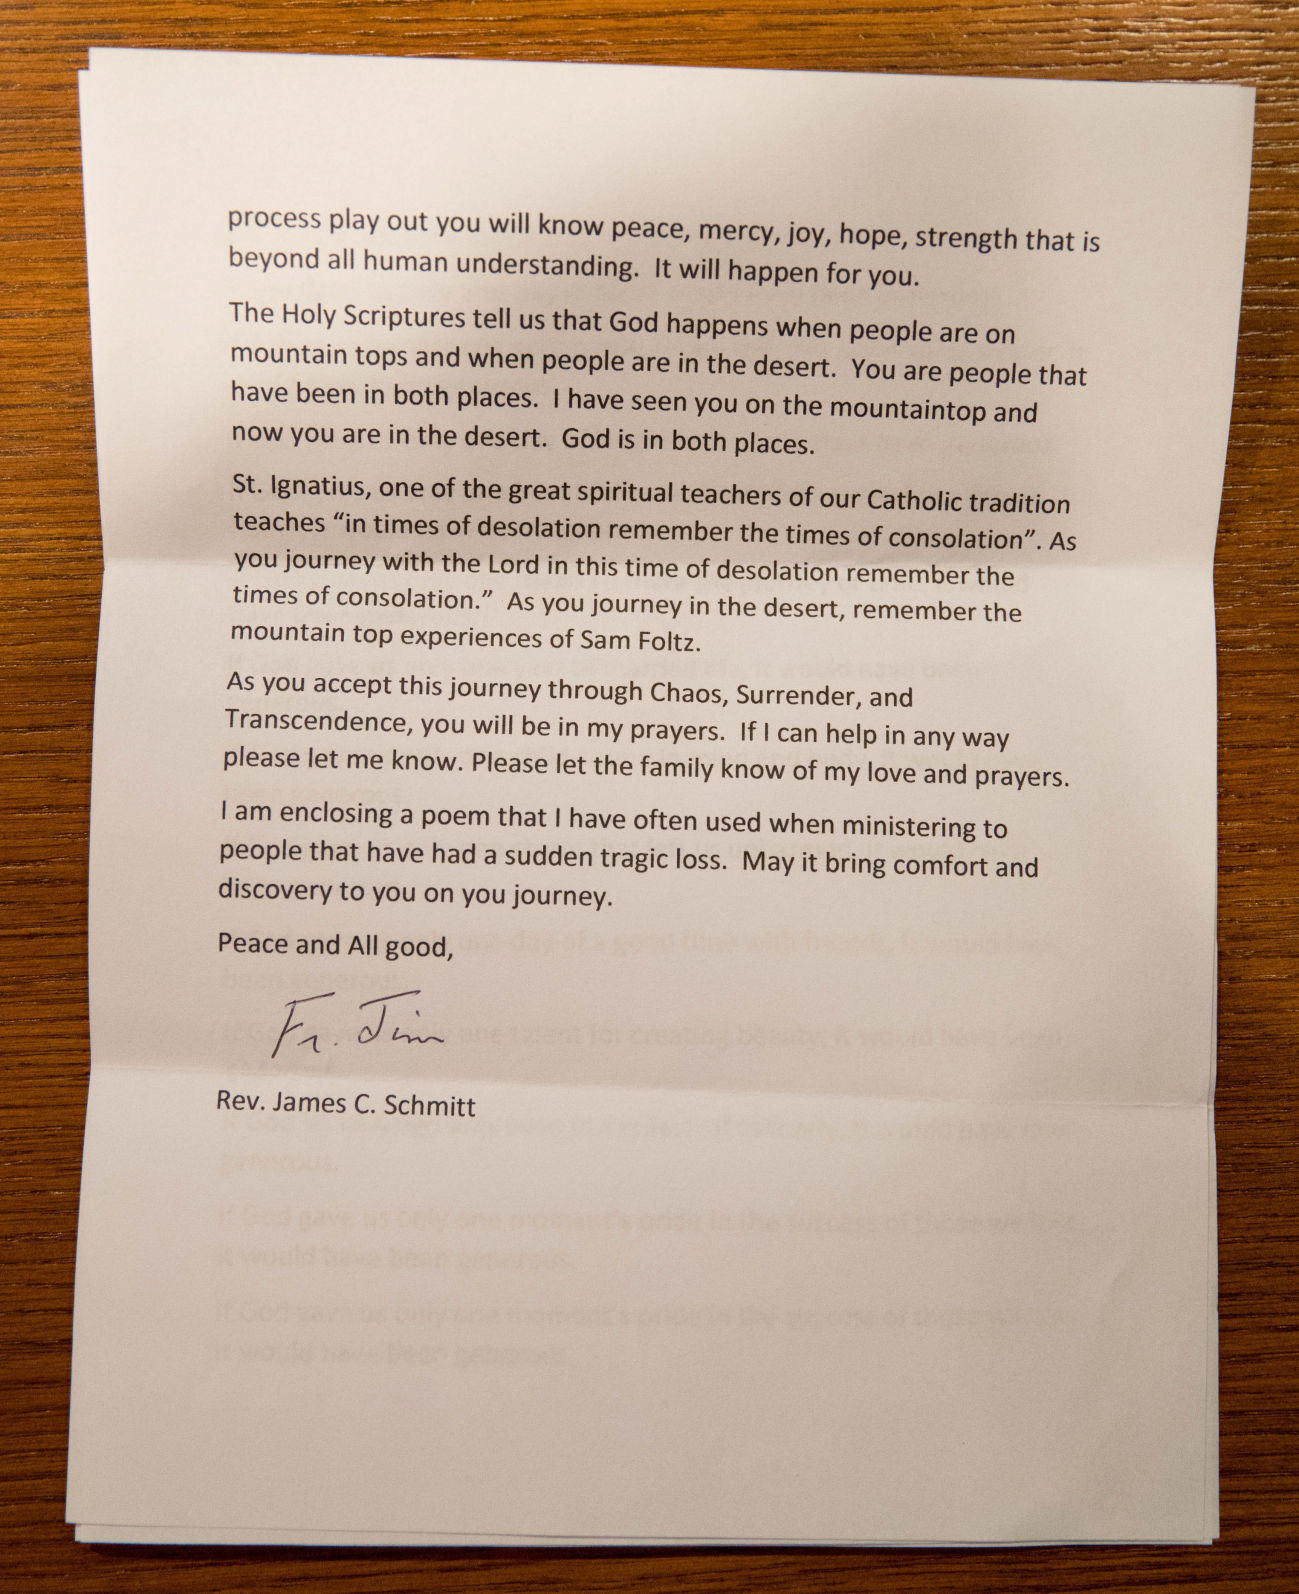 process play out you will know peace, mercy, joy, hope, strength that is
beyond all human understanding.  It will happen for you.
The Holy Scriptures tell us that God happens when people are on
mountain tops and when people are in the desert.  You are people that
have been in both places.  I have seen you on the mountaintop and
now you are in the desert.  God is in both places.
St. Ignatius, one of the great spiritual teachers of our Catholic tradition
teaches “in times of desolation remember the times of consolation”. As
you journey with the Lord in this time of desolation remember the
times of consolation.”  As you journey in the desert, remember the
mountain top experiences of Sam Foltz.
As you accept this journey through Chaos, Surrender, and
Transcendence, you will be in my prayers.  If I can help in any way
please let me know. Please let the family know of my love and prayers.
I am enclosing a poem that I have often used when ministering to
people that have had a sudden tragic loss.  May it bring comfort and
discovery to you on you journey.
Peace and All good,
Fr. Jim
Rev. James C. Schmitt
If God gave us only one moment's pride in the success of those we love,
it would have been generous.